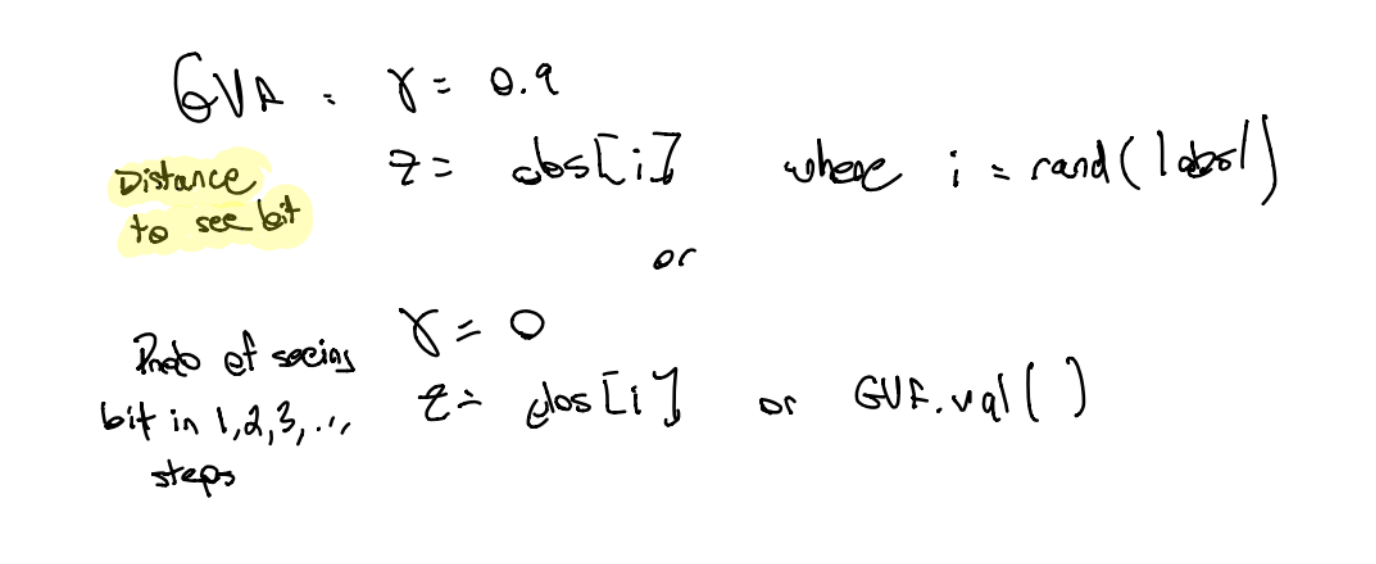 GVF = γ = 0.9
Distance to see bit
z = obs[i] where i = rand(|obs|)
or
γ = 0
Prob of seeing bit in 1,2,3,... steps
z = obs[i] or GVF.val( )